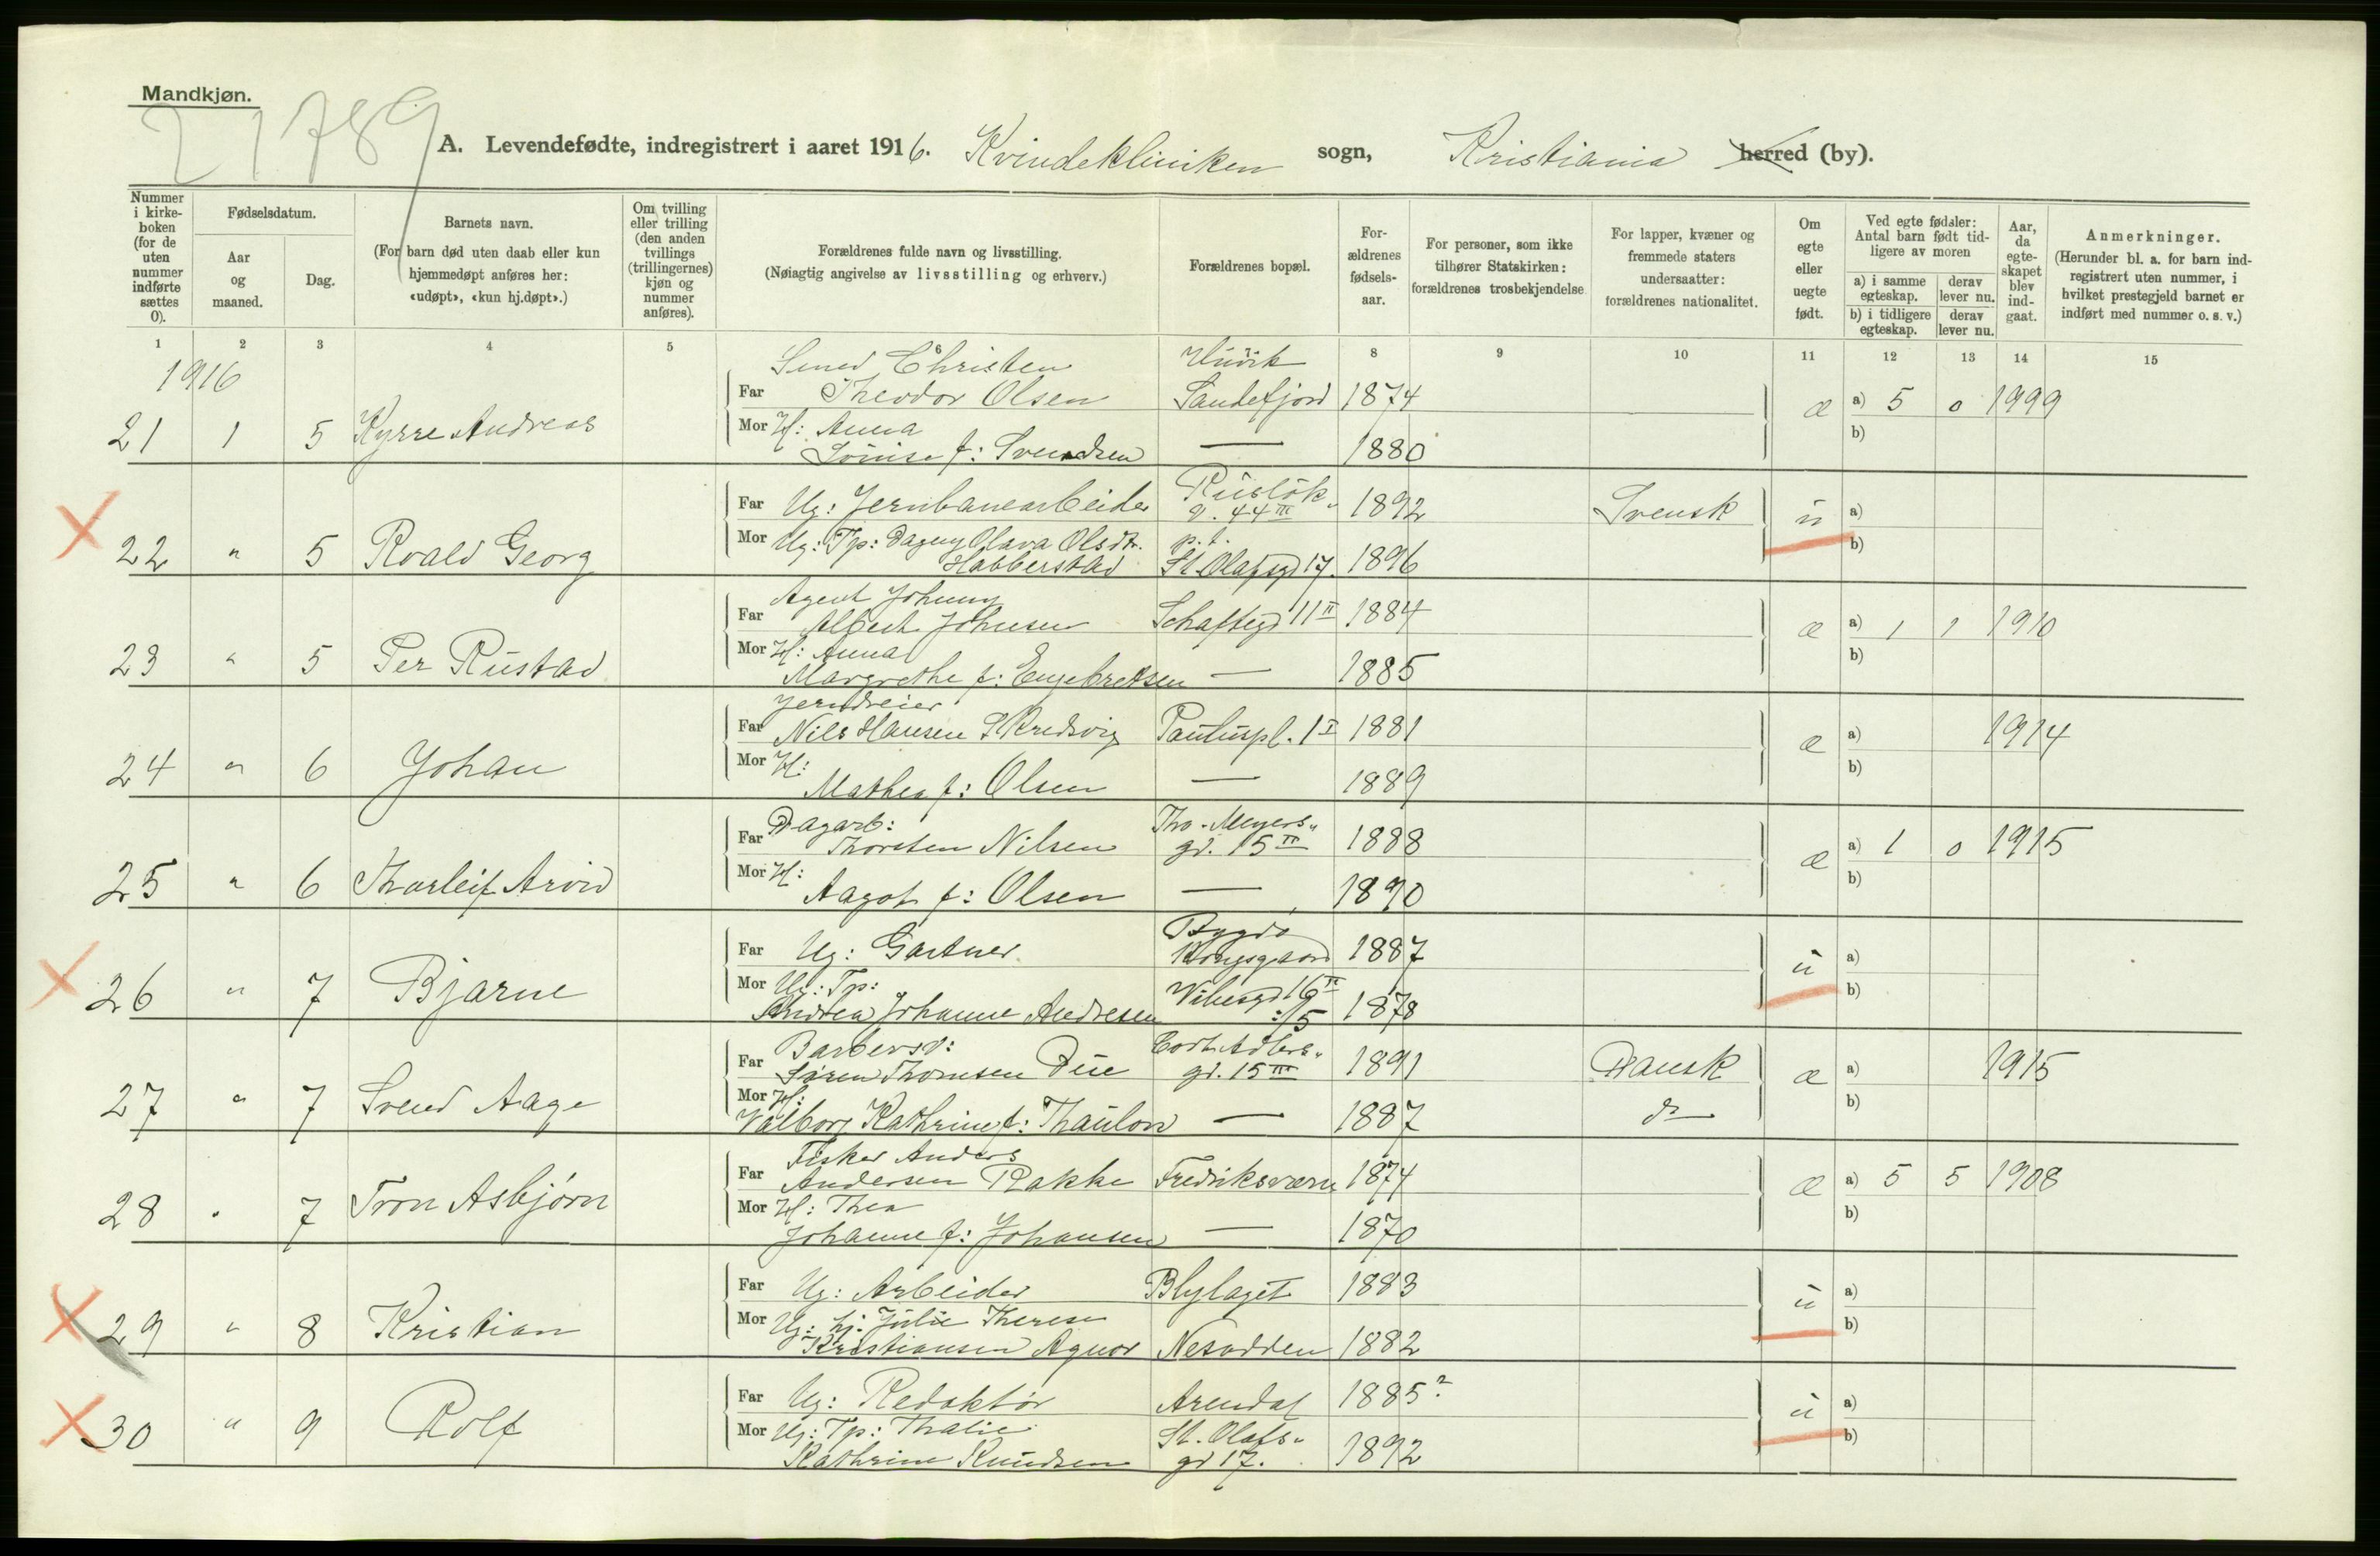 Mandkjøn.
21789
A. Levendefødte, indregistrert i aaret 1916. Kvindekliniken sogn, Kristiania herred (by).
Nummer i kirke-boken (for de uten nummer indførte sættes 0).
Fødselsdatum.
Aar og maaned.
Dag.
Barnets navn.
(For barn død uten daab eller kun hjemmedøpt anføres her: «udøpt», «kun hj.døpt».)
Om tvilling eller trilling (den anden tvillings (trillingernes) kjøn og nummer anføres).
Forældrenes fulde navn og livsstilling.
(Nøiagtig angivelse av livsstilling og erhverv.)
Forældrenes bopæl.
For-ældrenes fødsels-aar.
For personer, som ikke tilhører Statskirken: forældrenes trosbekjendelse
For lapper, kvæner og fremmede staters undersaatter: forældrenes nationalitet.
Om egte eller uegte født.
Ved egte fødsler: Antal barn født tid-ligere av moren
a) i samme egteskap. derav lever nu.
b) i tidligere egteskap. derav lever nu.
Aar, da egte-skapet blev ind-gaat.
Anmerkninger.
(Herunder bl. a. for barn ind-registrert uten nummer, i hvilket prestegjeld barnet er indført med nummer o. s. v.)
1 2 3 4 5 6 7 8 9 10 11 12 13 14 15
1916
Smed Christen
Far Theodor Olsen Sandefjord 1874 æ a) 5 0 1999
21 1 5 Kyrre Andreas
Mor H: Anna
Louise f: Svendsen — 1880 b)
Far Ug: Jernbanearbeider Rusløk.. g. 44 III 1892 Svensk u a)
22 " 5 Roald Georg
Mor Ug: Tp: Dagny Olava Olsdt. p.t.
Habberstad St. Olafsgd 17. 1896 b)
Agent Johnny
Far Albert Johnsen Schaftsgd 11 II 1884 æ a) 1 1 1910
23 " 5 Per Rustad
Mor H: Anna
Margrethe f: Engebretsen — 1885 b)
Jerndreier
Far Nils Hansen Skredsvig Pauluspl. 1 I 1881 æ a) 1914
24 " 6 Johan
Mor H:
Mathea f: Olsen — 1889 b)
Dagarb: Thv. Meyers..
Far Thorsten Nilsen gd. 15 II 1888 æ a) 1 0 1915
25 " 6 Thorleif Arvid
Mor H:
Aagot f: Olsen — 1890 b)
Bygdø
Far Ug: Gartner Kongsgaard 1887 u a)
26 " 7 Bjarne
Mor Ug: Tp: Vibesgd 16 II
Andrea Johanne Andresen 1878 b)
Barbersv: Cort Adlers..
Far Søren Thomsen Due gd. 15 III 1891 Dansk æ a) 1915
27 " 7 Svend Aage
Mor H:
Valborg Kathrine f: Thaulow — 1887 do b)
Fisker Anders
Far Andersen Rakke Fredriksværn 1874 æ a) 5 5 1908
28 " 7 Tron Asbjørn
Mor H: Thea
Johanne f: Johansen — 1870 b)
Far Ug: Arbeider Blylaget 1883 u a)
29 " 8 Kristian
Mor Ug: hj. Julie Therese
Kristiansen Agnor Nesodden 1882 b)
Far Ug: Redaktør Arendal 1885? u a)
30 " 9 Rolf
Mor Ug: Tp: Thalie St. Olafs..
Kathrine Knudsen gd 17. 1892 b)